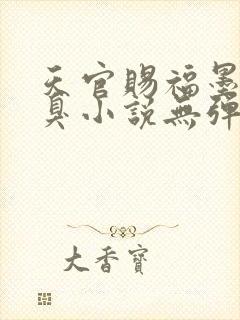 天官賜福墨
臭小説無彈
大香寶